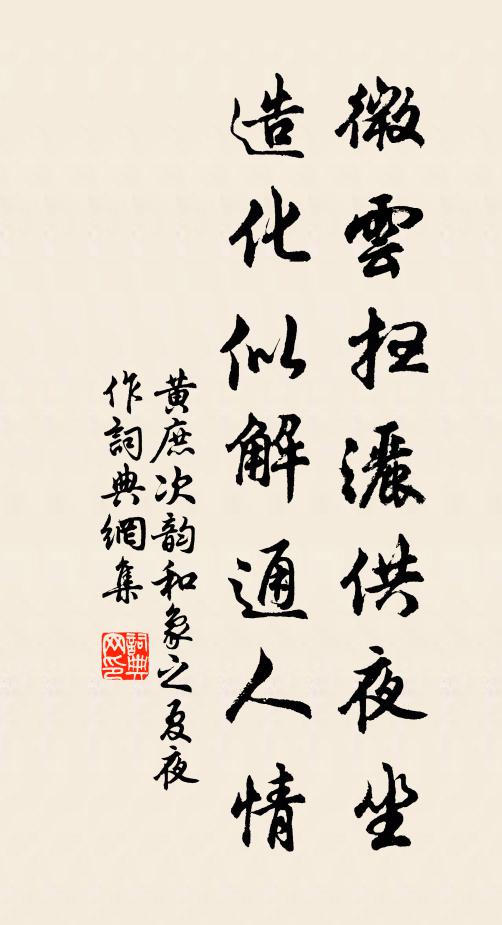 微雲扫灑供夜坐
造化似解通人情
黄庶次韵和象之夏夜
作詞典網集
詞典網印